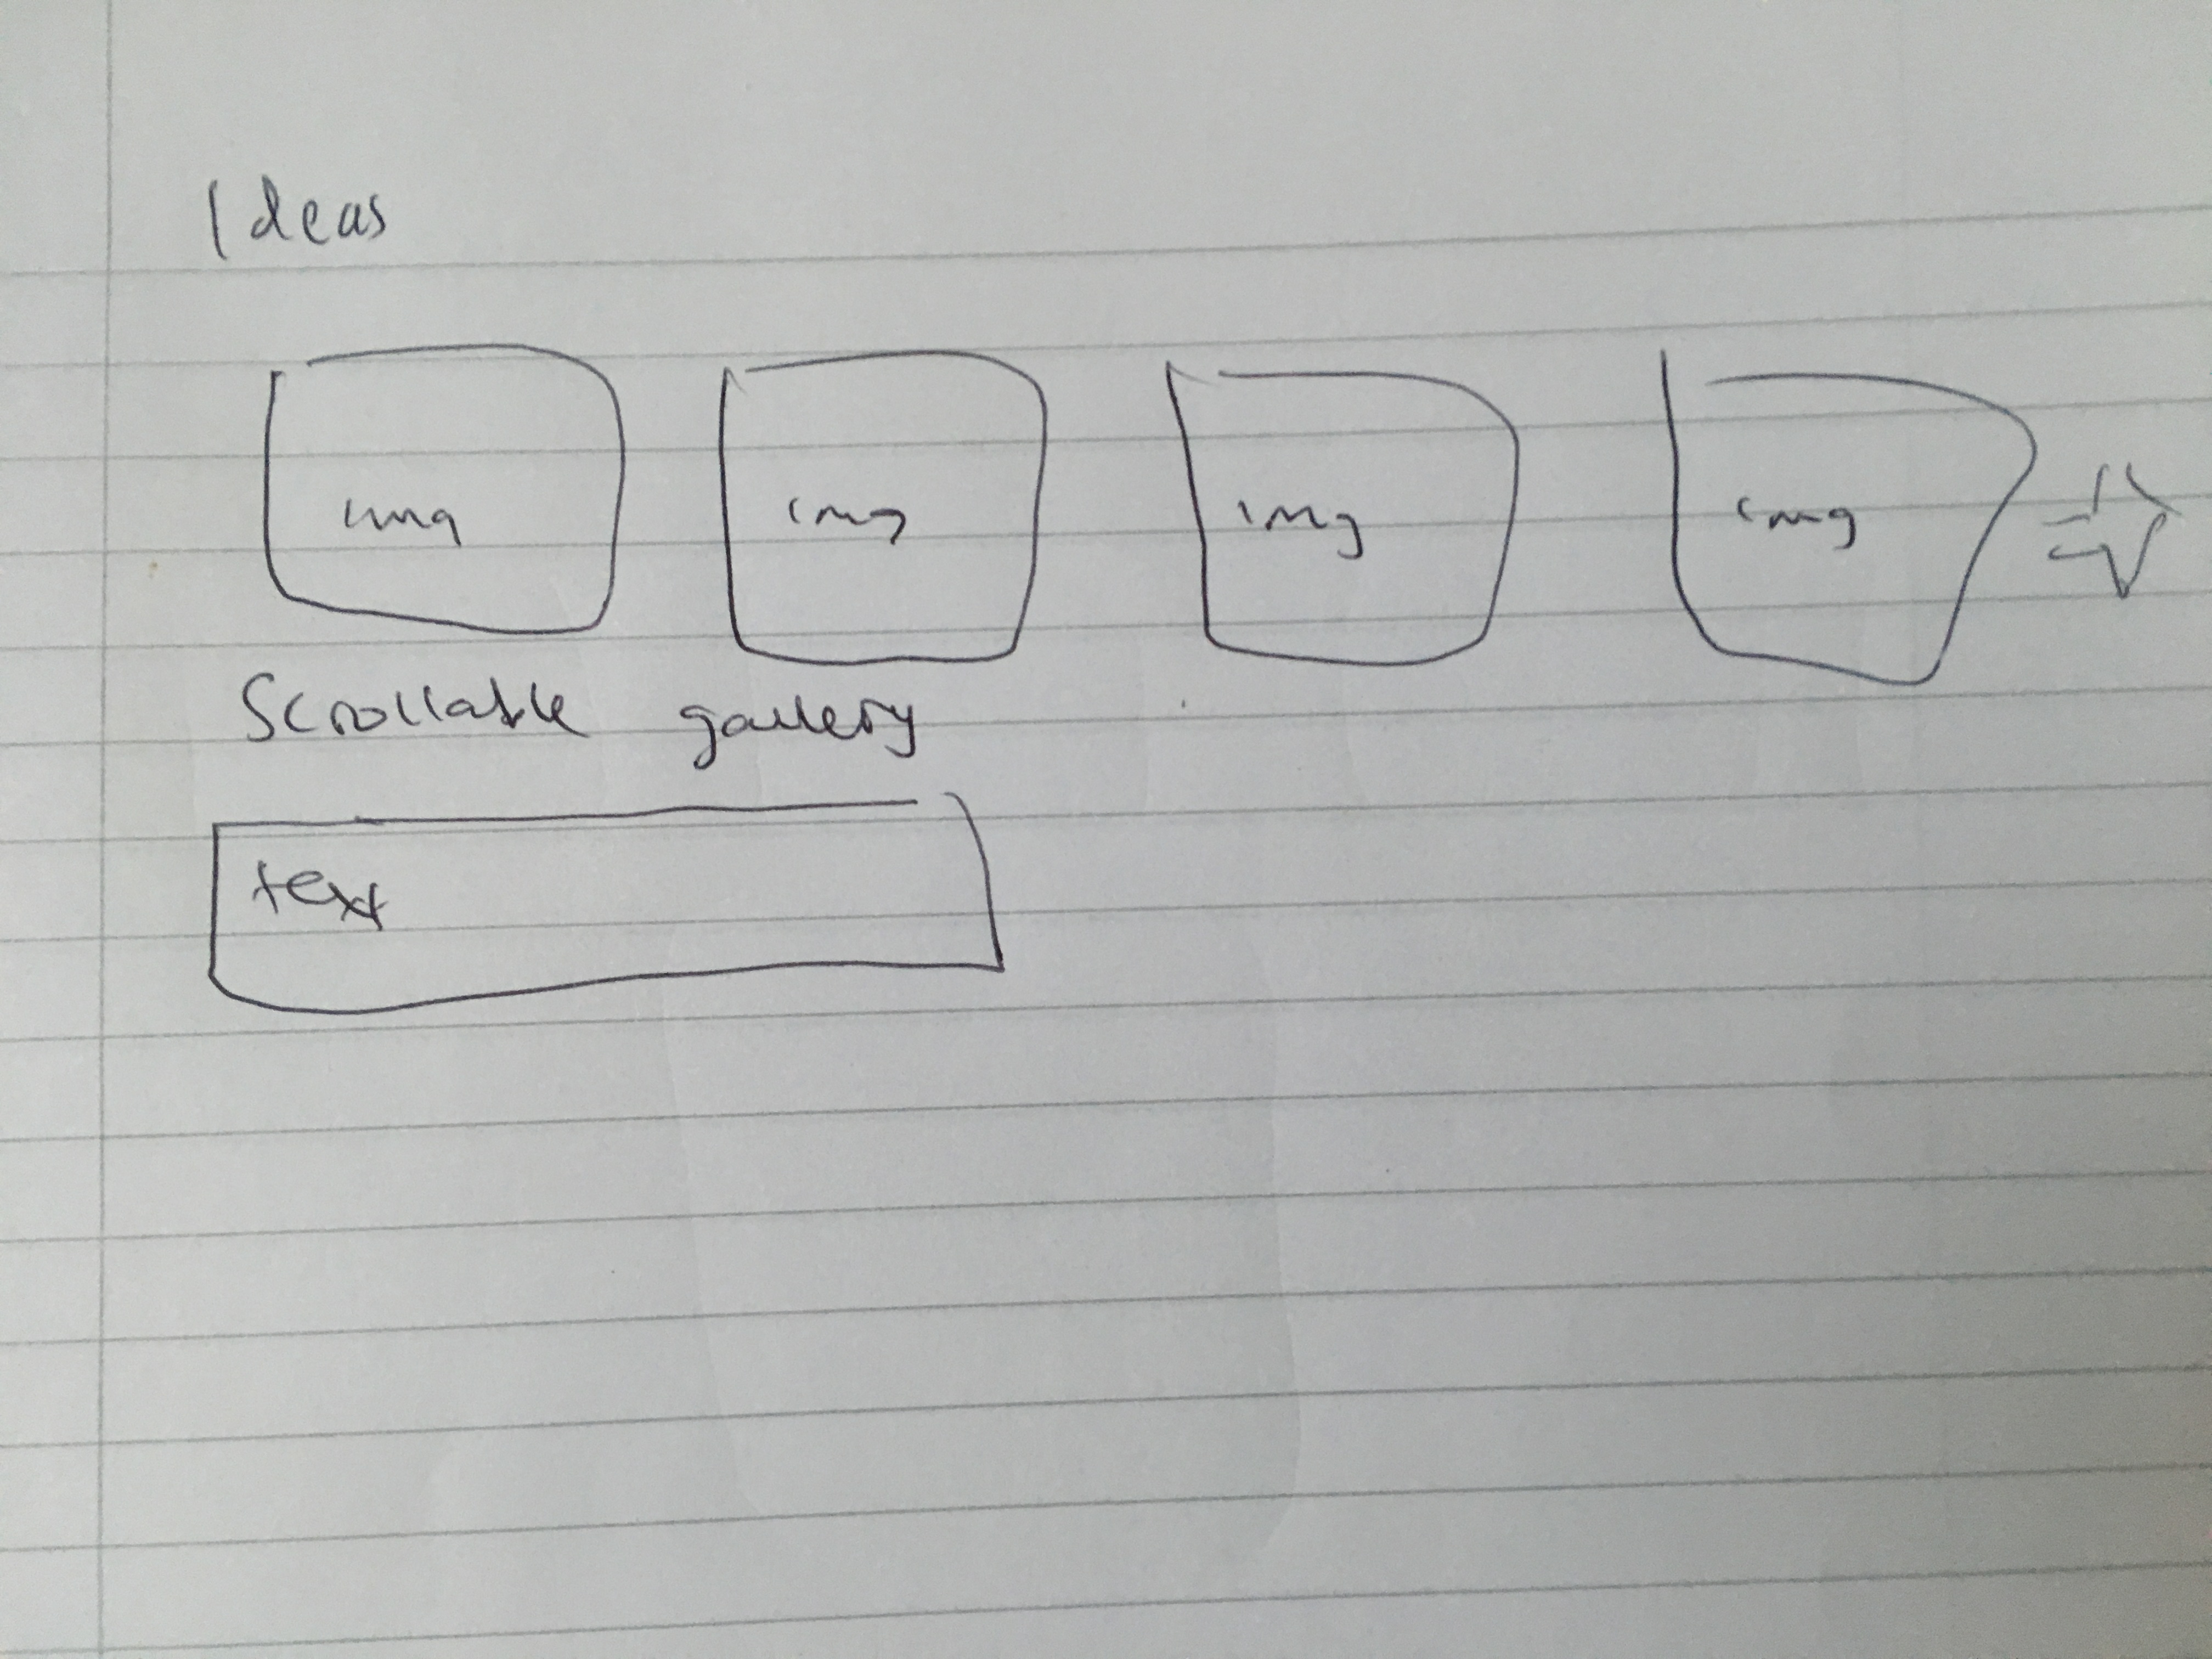 Ideas
img img img img
Scrollable gallery
text